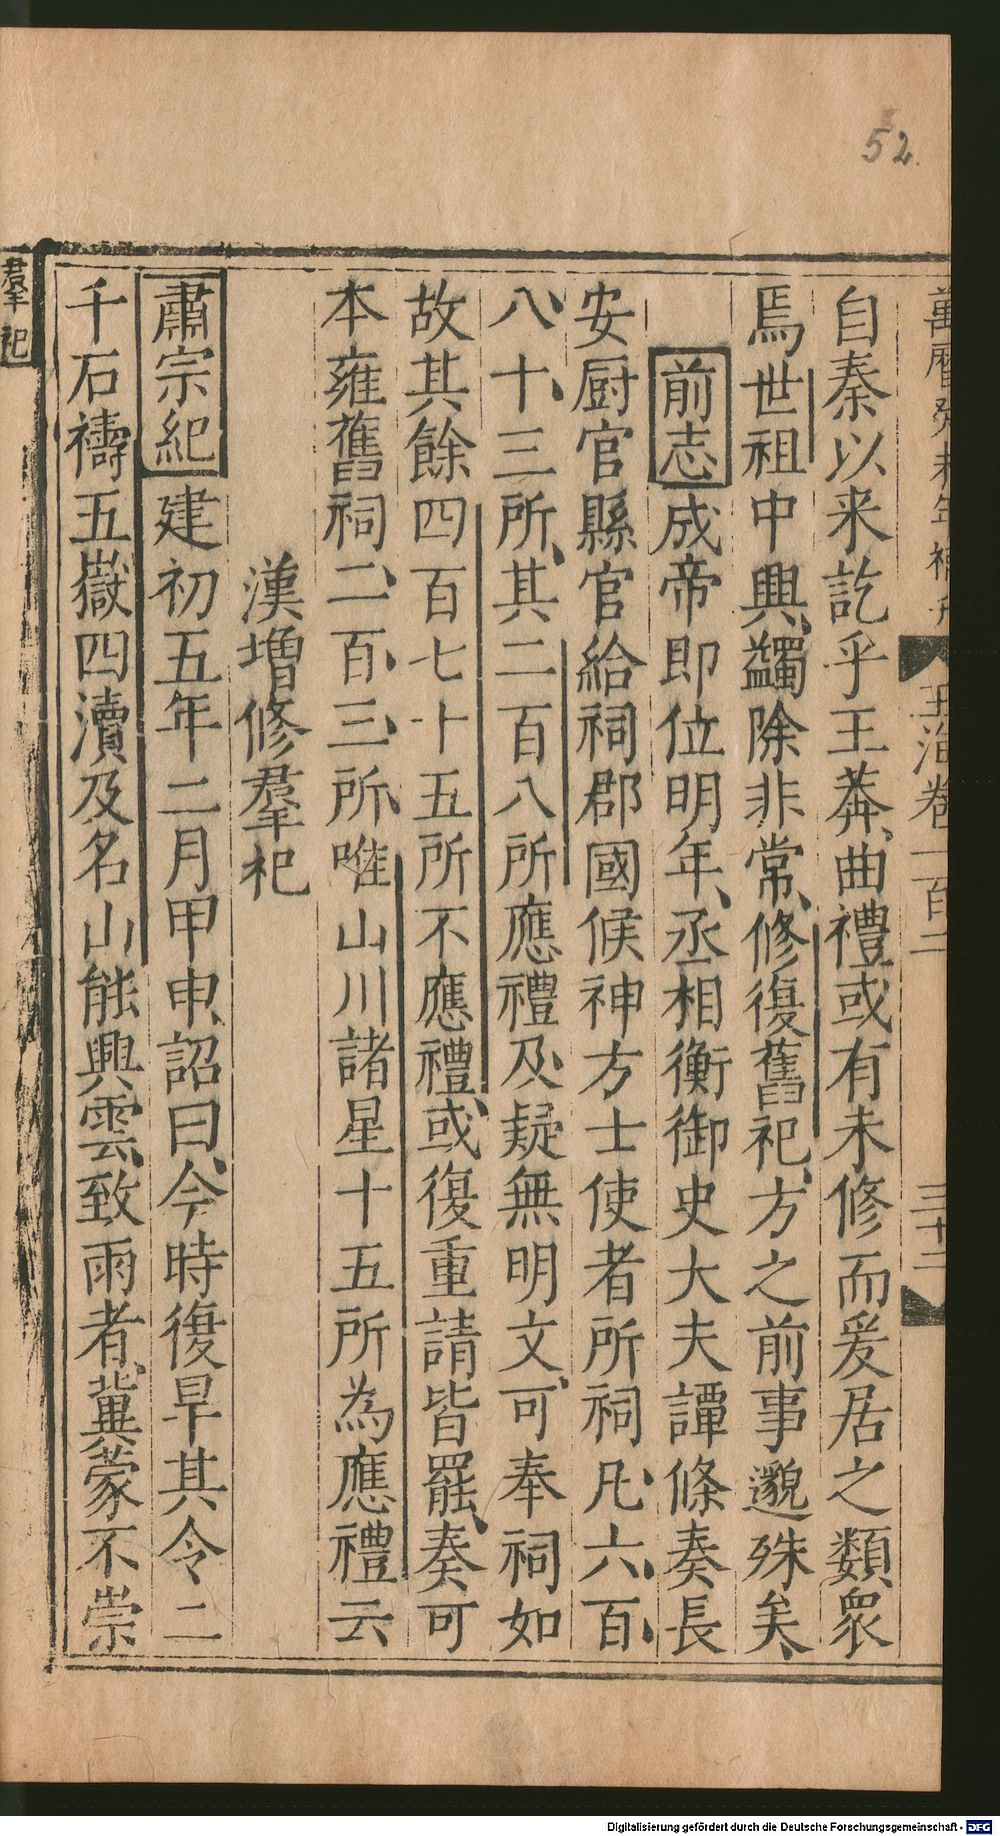 52.
萬曆癸未年補刊 玉海卷一百二 三十二
自秦以来訖乎王莽曲禮或有未修而爰居之類衆
焉世祖中興蠲除非常修復舊祀方之前事邈殊矣
前志成帝即位明年丞相衡御史大夫譚條奏長
安厨官縣官給祠郡國候神方士使者所祠凡六百
八十三所其二百八所應禮及疑無明文可奉祠如
故其餘四百七十五所不應禮或復重請皆罷奏可
本雍舊祠二百三所唯山川諸星十五所為應禮云
漢增修羣祀
肅宗紀建初五年二月甲申詔曰今時復旱其令二
千石禱五嶽四瀆及名山能興雲致雨者冀蒙不崇
羣祀
Digitalisierung gefördert durch die Deutsche Forschungsgemeinschaft - DFG